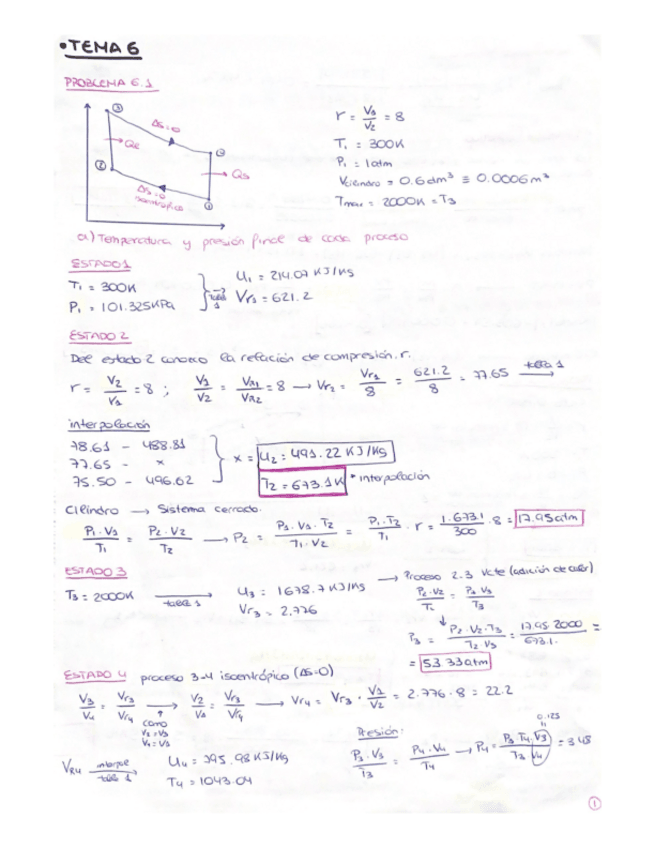 •TEMA 6
PROBLEMA 6.1
③
ΔS=0
Qe
④
②
Qs
ΔS=0
isentrópico
①
r = V1/V2 = 8
T1 = 300K
P1 = 1atm
Vcilindro = 0.6dm³ ≡ 0.0006m³
Tmax = 2000K = T3
a) Temperatura y presión final de cada proceso
ESTADO 1
T1 = 300K
P1 = 101.325KPa
tabla 1
U1 = 214.07 KJ/Kg
Vr1 = 621.2
ESTADO 2
Del estado 2 conozco la relación de compresión, r.
r = V2/V1 = 8 ; V1/V2 = VR1/VR2 = 8 → Vr2 = Vr1/8 = 621.2/8 = 77.65 tabla 1
interpolación
78.61 - 488.81
77.65 - x
75.50 - 496.62
x = U2 = 491.22 KJ/Kg
T2 = 673.1K * interpolación
Cilindro → Sistema cerrado.
P1·V1/T1 = P2·V2/T2 → P2 = P1·V1·T2/T1·V2 = P1·T2/T1 · r = 1·673.1/300 · 8 = 17.95atm
ESTADO 3
T3 = 2000K tabla 1
U3 = 1678.7 KJ/Kg
Vr3 = 2.776
→ Proceso 2.3 Vcte (adición de calor)
P2·V2/T2 = P3·V3/T3
P3 = P2·V2·T3/T2·V3 = 17.95·2000/673.1 =
= 53.33atm
ESTADO 4 proceso 3-4 isoentrópico (ΔS=0)
V3/V4 = Vr3/Vr4 → V2/V1 = Vr3/Vr4 → Vr4 = Vr3 · V1/V2 = 2.776 · 8 = 22.2
como
V2 = V3
V4 = V1
VR4 interpol tabla 1
U4 = 795.98 KJ/Kg
T4 = 1043.04
Presión:
P3·V3/T3 = P4·V4/T4 → P4 = P3·T4·V3/T3·V4 = 3.48
0.125
1